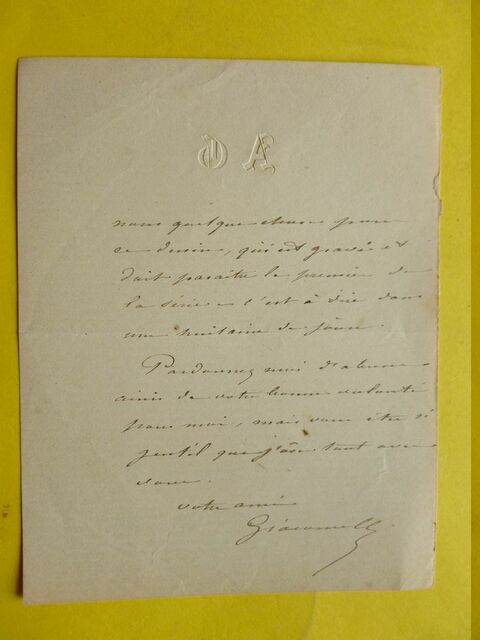 A G
nous quelque chose pour
ce dessin, qui est gravé et
doit paraître le premier de
la série, c'est à dire dans
une huitaine de jours.
Pardonnez moi d'abuser
ainsi de votre bonne volonté
pour moi, mais vous êtes si
gentil que j'ose tout avec
vous.
votre ami
Giacomelli